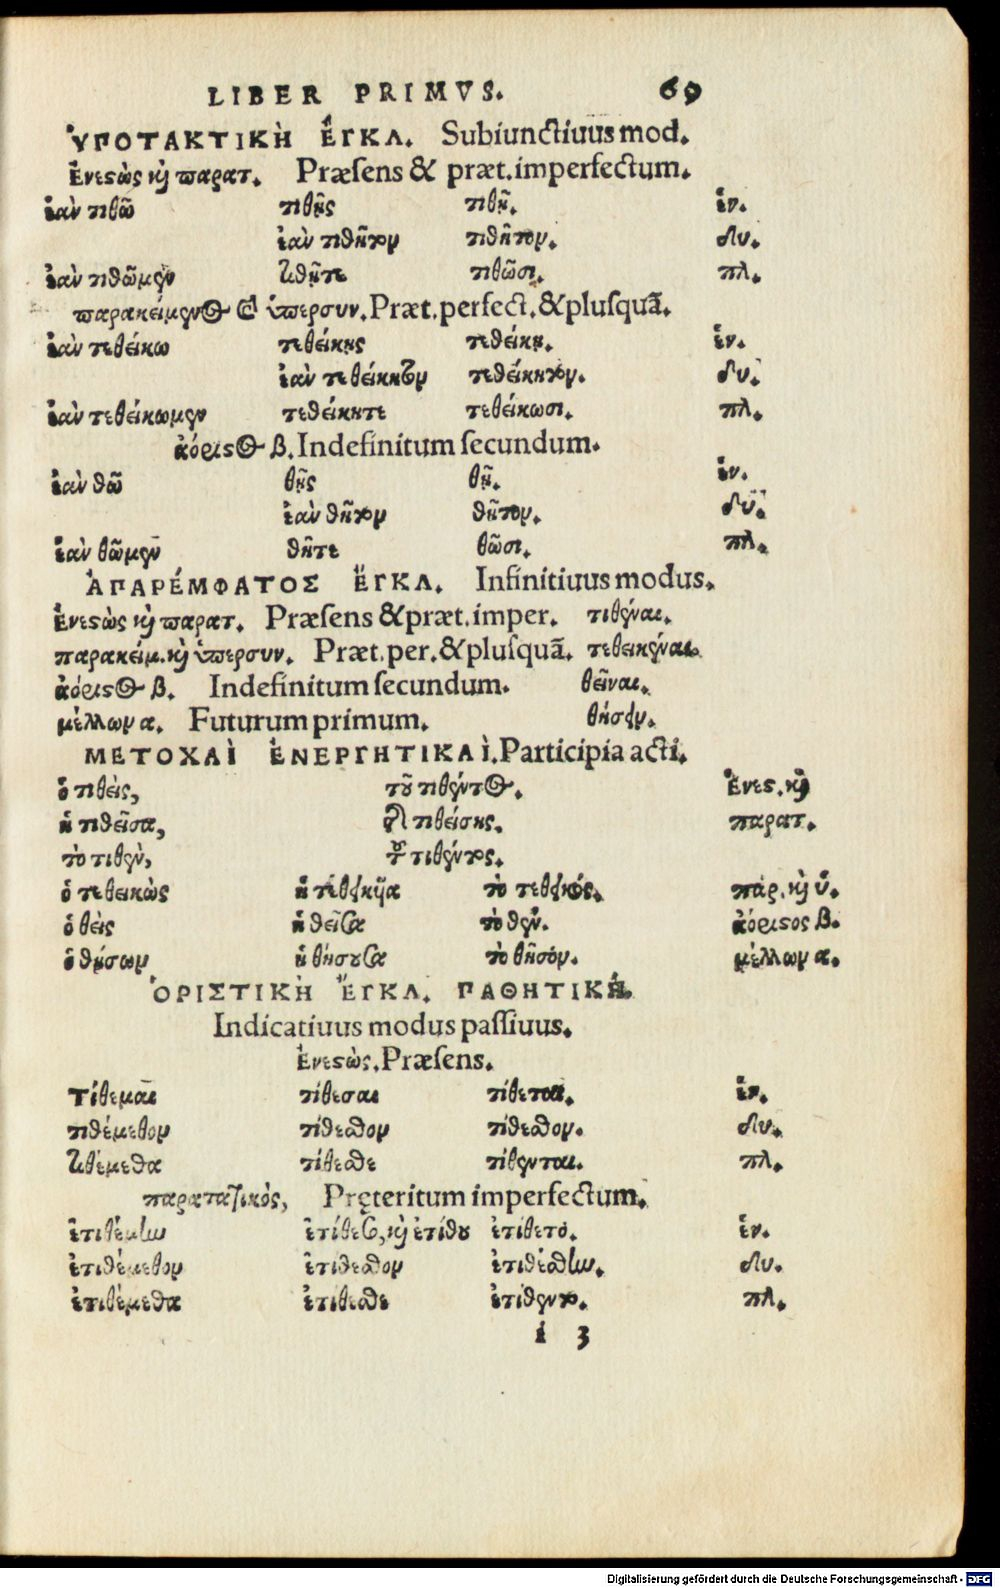 LIBER PRIMVS. 69
ὙΠΟΤΑΚΤΙΚῊ ἜΓΚΛ. Subiunctiuus mod.
Ἐνεϛὼς κỳ παρατ. Præſens & præt. imperfectum.
ἐὰν τιθῶ τιθῇς τιθῇ. ἑν.
ἐὰν τιθῆτον τιθῆτον. δυ.
ἐὰν τιθῶμεν τιθῆτε τιθῶσι. πλ.
παρακείμενος καὶ ὑπερσυν. Præt. perfect. & pluſquã.
ἐὰν τεθείκω τεθείκῃς τεθείκῃ. ἑν.
ἐὰν τεθείκητον τεθείκητον. δυ.
ἐὰν τεθείκωμεν τεθείκητε τεθείκωσι. πλ.
ἀόριϛος β. Indefinitum ſecundum.
ἐὰν θῶ θῇς θῇ. ἑν.
ἐὰν θῆτον θῆτον. δυ.
ἐὰν θῶμεν θῆτε θῶσι. πλ.
ἈΠΑΡΈΜΦΑΤΟΣ ἜΓΚΛ. Infinitiuus modus.
Ἐνεϛὼς κỳ παρατ. Præſens & præt. imper. τιθέναι.
παρακείμ. κỳ ὑπερσυν. Præt. per. & pluſquã. τεθεικέναι.
ἀόριϛος β. Indefinitum ſecundum. θεῖναι.
μέλλων α. Futurum primum. θήσειν.
ΜΕΤΟΧΑῚ ἘΝΕΡΓΗΤΙΚΑῚ. Participia acti.
ὁ τιθεὶς, τοῦ τιθέντος. Ἐνεϛ. κỳ
ἡ τιθεῖσα, τῆς τιθείσης. παρατ.
τὸ τιθὲν, τοῦ τιθέντος.
ὁ τεθεικὼς ἡ τεθεικῦα τὸ τεθεικός. πάρ. κỳ ὑ.
ὁ θεὶς ἡ θεῖσα τὸ θέν. ἀόριϛος β.
ὁ θήσων ἡ θήσουσα τὸ θῆσον. μέλλων α.
ὉΡΙΣΤΙΚῊ ἜΓΚΛ. ΠΑΘΗΤΙΚΉ.
Indicatiuus modus paſſiuus.
Ἐνεϛὼς. Præſens.
Τίθεμαι τίθεσαι τίθεται. ἑν.
τιθέμεθον τίθεσθον τίθεσθον. δυ.
τιθέμεθα τίθεσθε τίθενται. πλ.
παρατατικός, Pręteritum imperfectum.
ἐτιθέμην ἐτίθεσο, κỳ ἐτίθου ἐτίθετο. ἑν.
ἐτιθέμεθον ἐτίθεσθον ἐτιθέσθην. δυ.
ἐτιθέμεθα ἐτίθεσθε ἐτίθεντο. πλ.
i 3
Digitalisierung gefördert durch die Deutsche Forschungsgemeinschaft - DFG